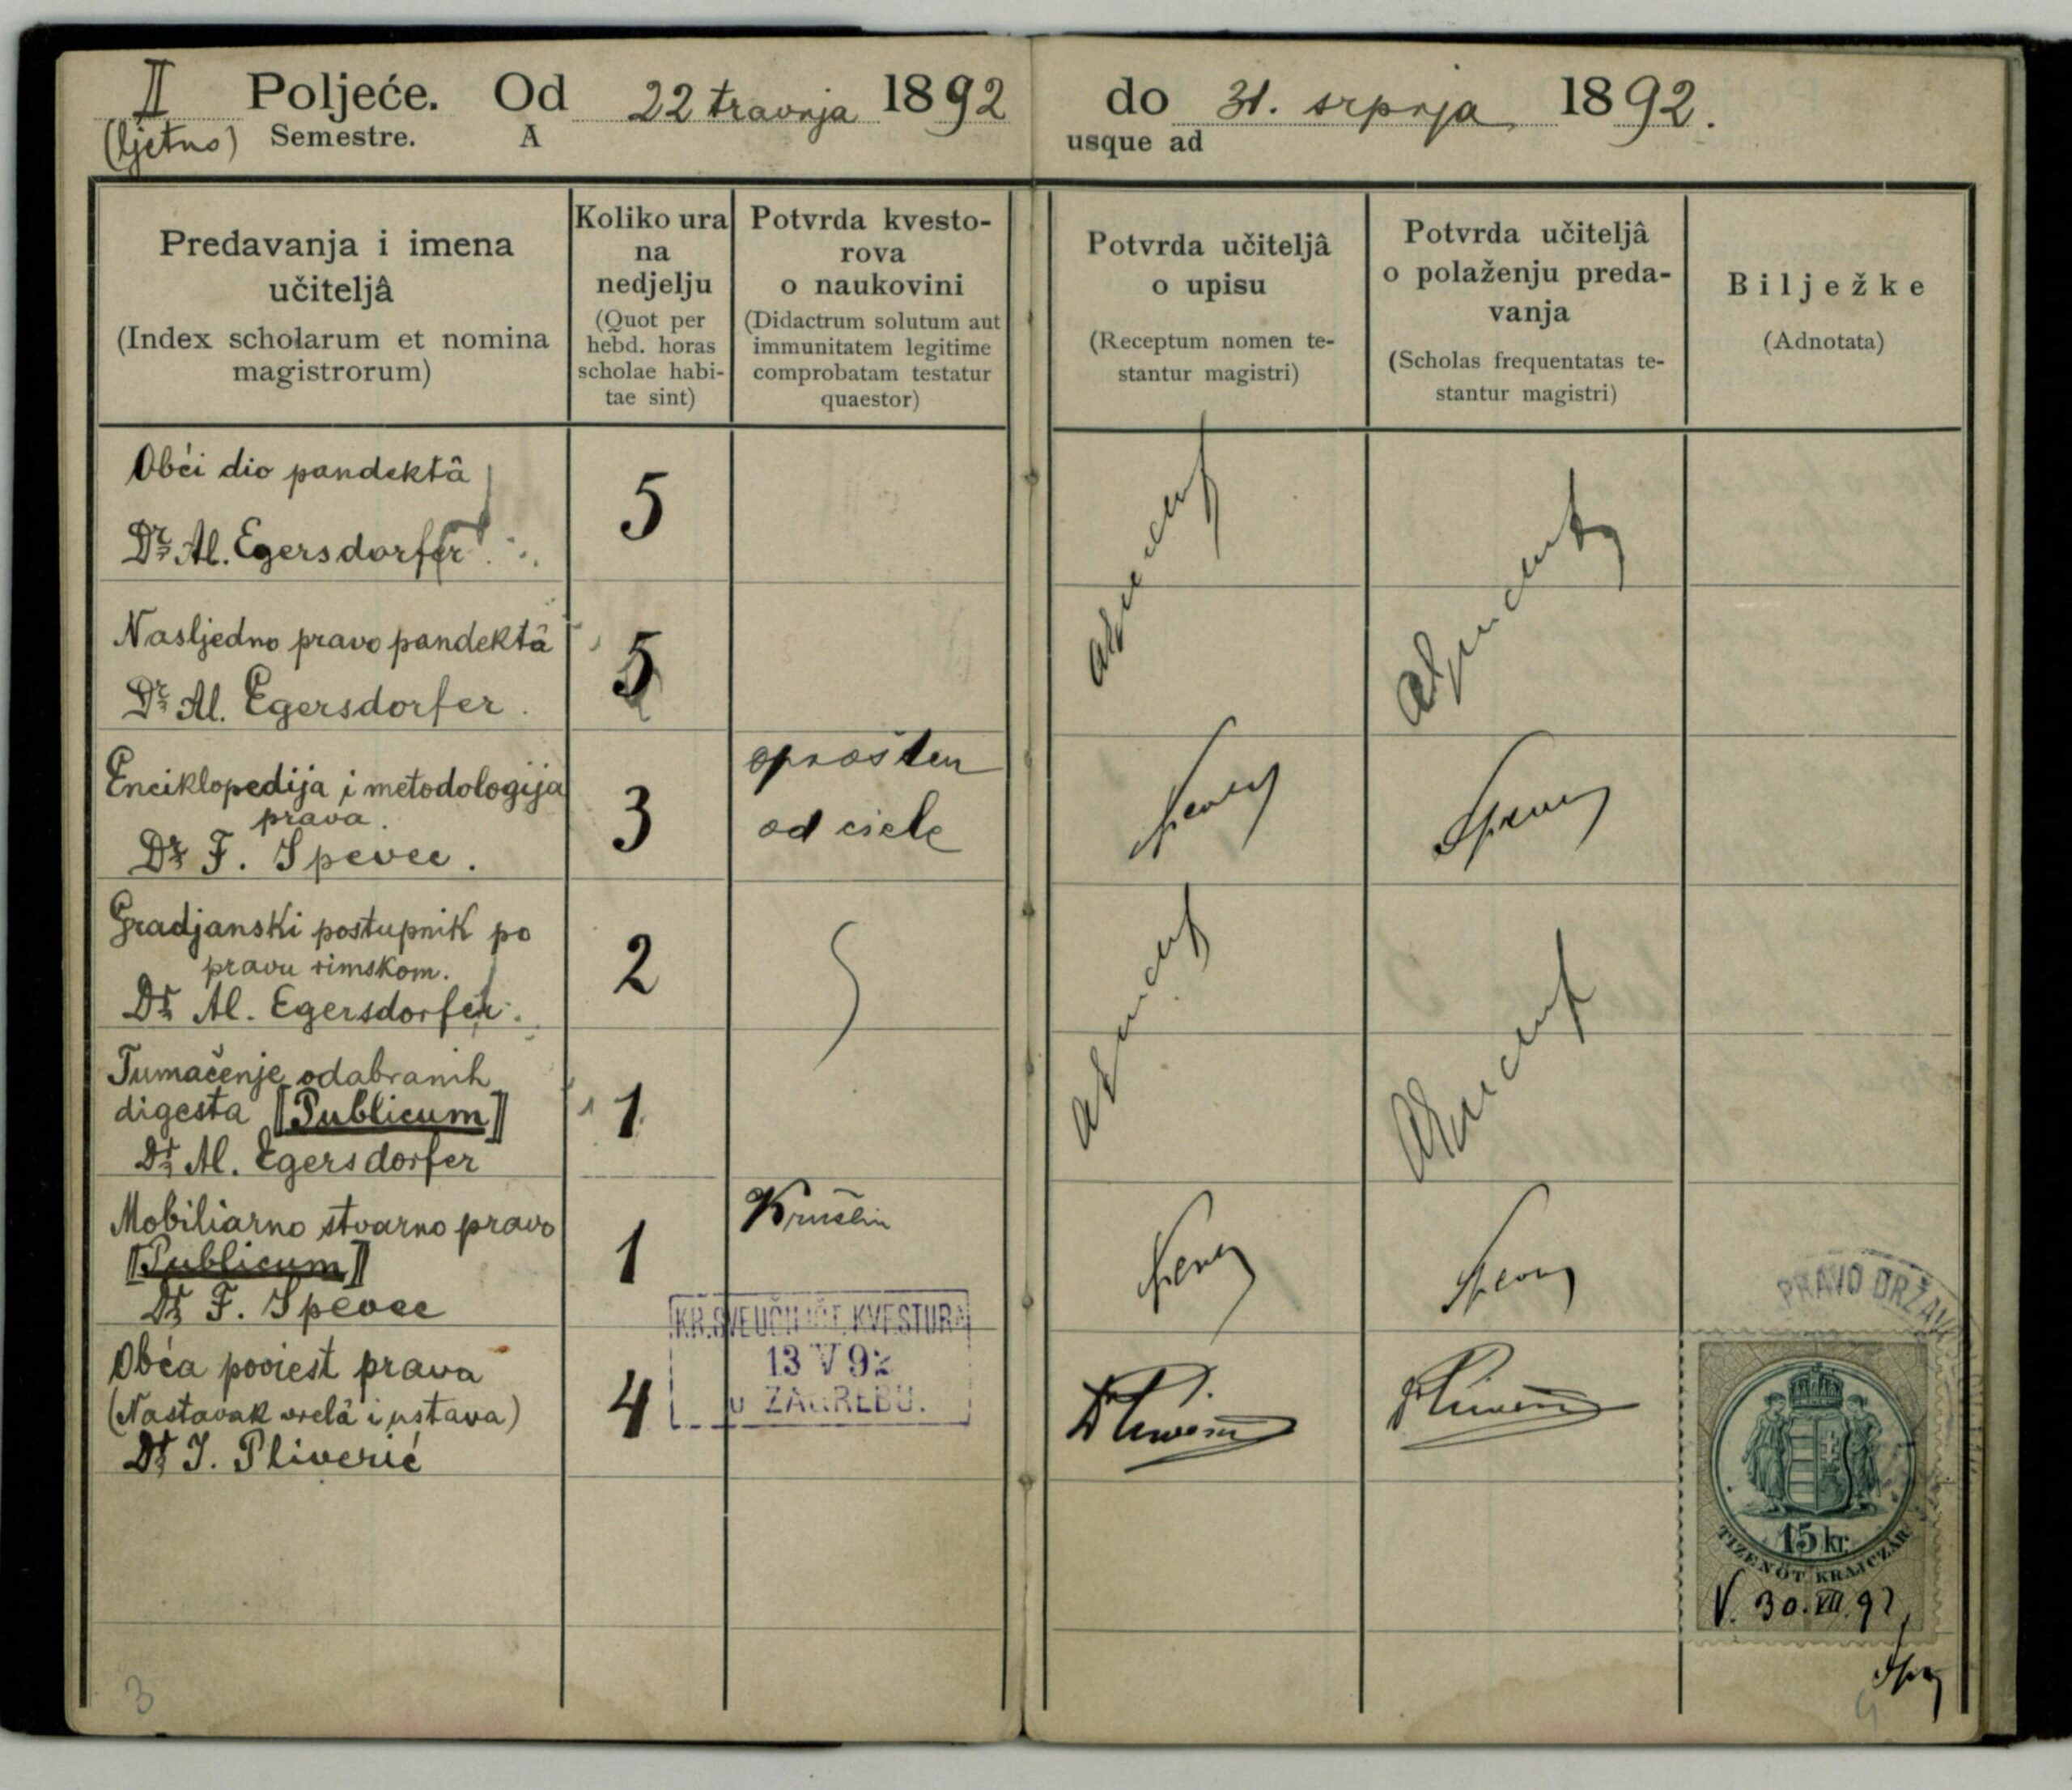 II Poljeće. Od 22 travnja 1892 do 31. srpnja 1892.
(ljetno) Semestre. A usque ad
Predavanja i imena
učiteljâ
(Index scholarum et nomina
magistrorum)
Koliko ura
na
nedjelju
(Quot per
hebd. horas
scholae habi-
tae sint)
Potvrda kvesto-
rova
o naukovini
(Didactrum solutum aut
immunitatem legitime
comprobatam testatur
quaestor)
Potvrda učiteljâ
o upisu
(Receptum nomen te-
stantur magistri)
Potvrda učiteljâ
o polaženju preda-
vanja
(Scholas frequentatas te-
stantur magistri)
Bilježke
(Adnotata)
Obći dio pandektâ
Dr Al. Egersdorfer
5
Nasljedno pravo pandektâ
Dr Al. Egersdorfer.
5
Enciklopedija i metodologija
prava.
Dr F. Spevec.
3
oprošten
od ciele
Gradjanski postupnik po
pravu rimskom.
Dr Al. Egersdorfer.
2
Tumačenje odabranih
digesta [Publicum]
Dr Al. Egersdorfer
1
Mobiliarno stvarno pravo
[Publicum]
Dr F. Spevec
1
KR. SVEUČILIŠT. KVESTURA
13 V 92
U ZAGREBU.
Obća poviest prava
(Nastavak vrelâ i ustava)
Dr J. Pliverić
4
PRAVO DRŽAV
15 kr.
TIZENÖT KRAJCZÁR
V. 30. VII. 92
3